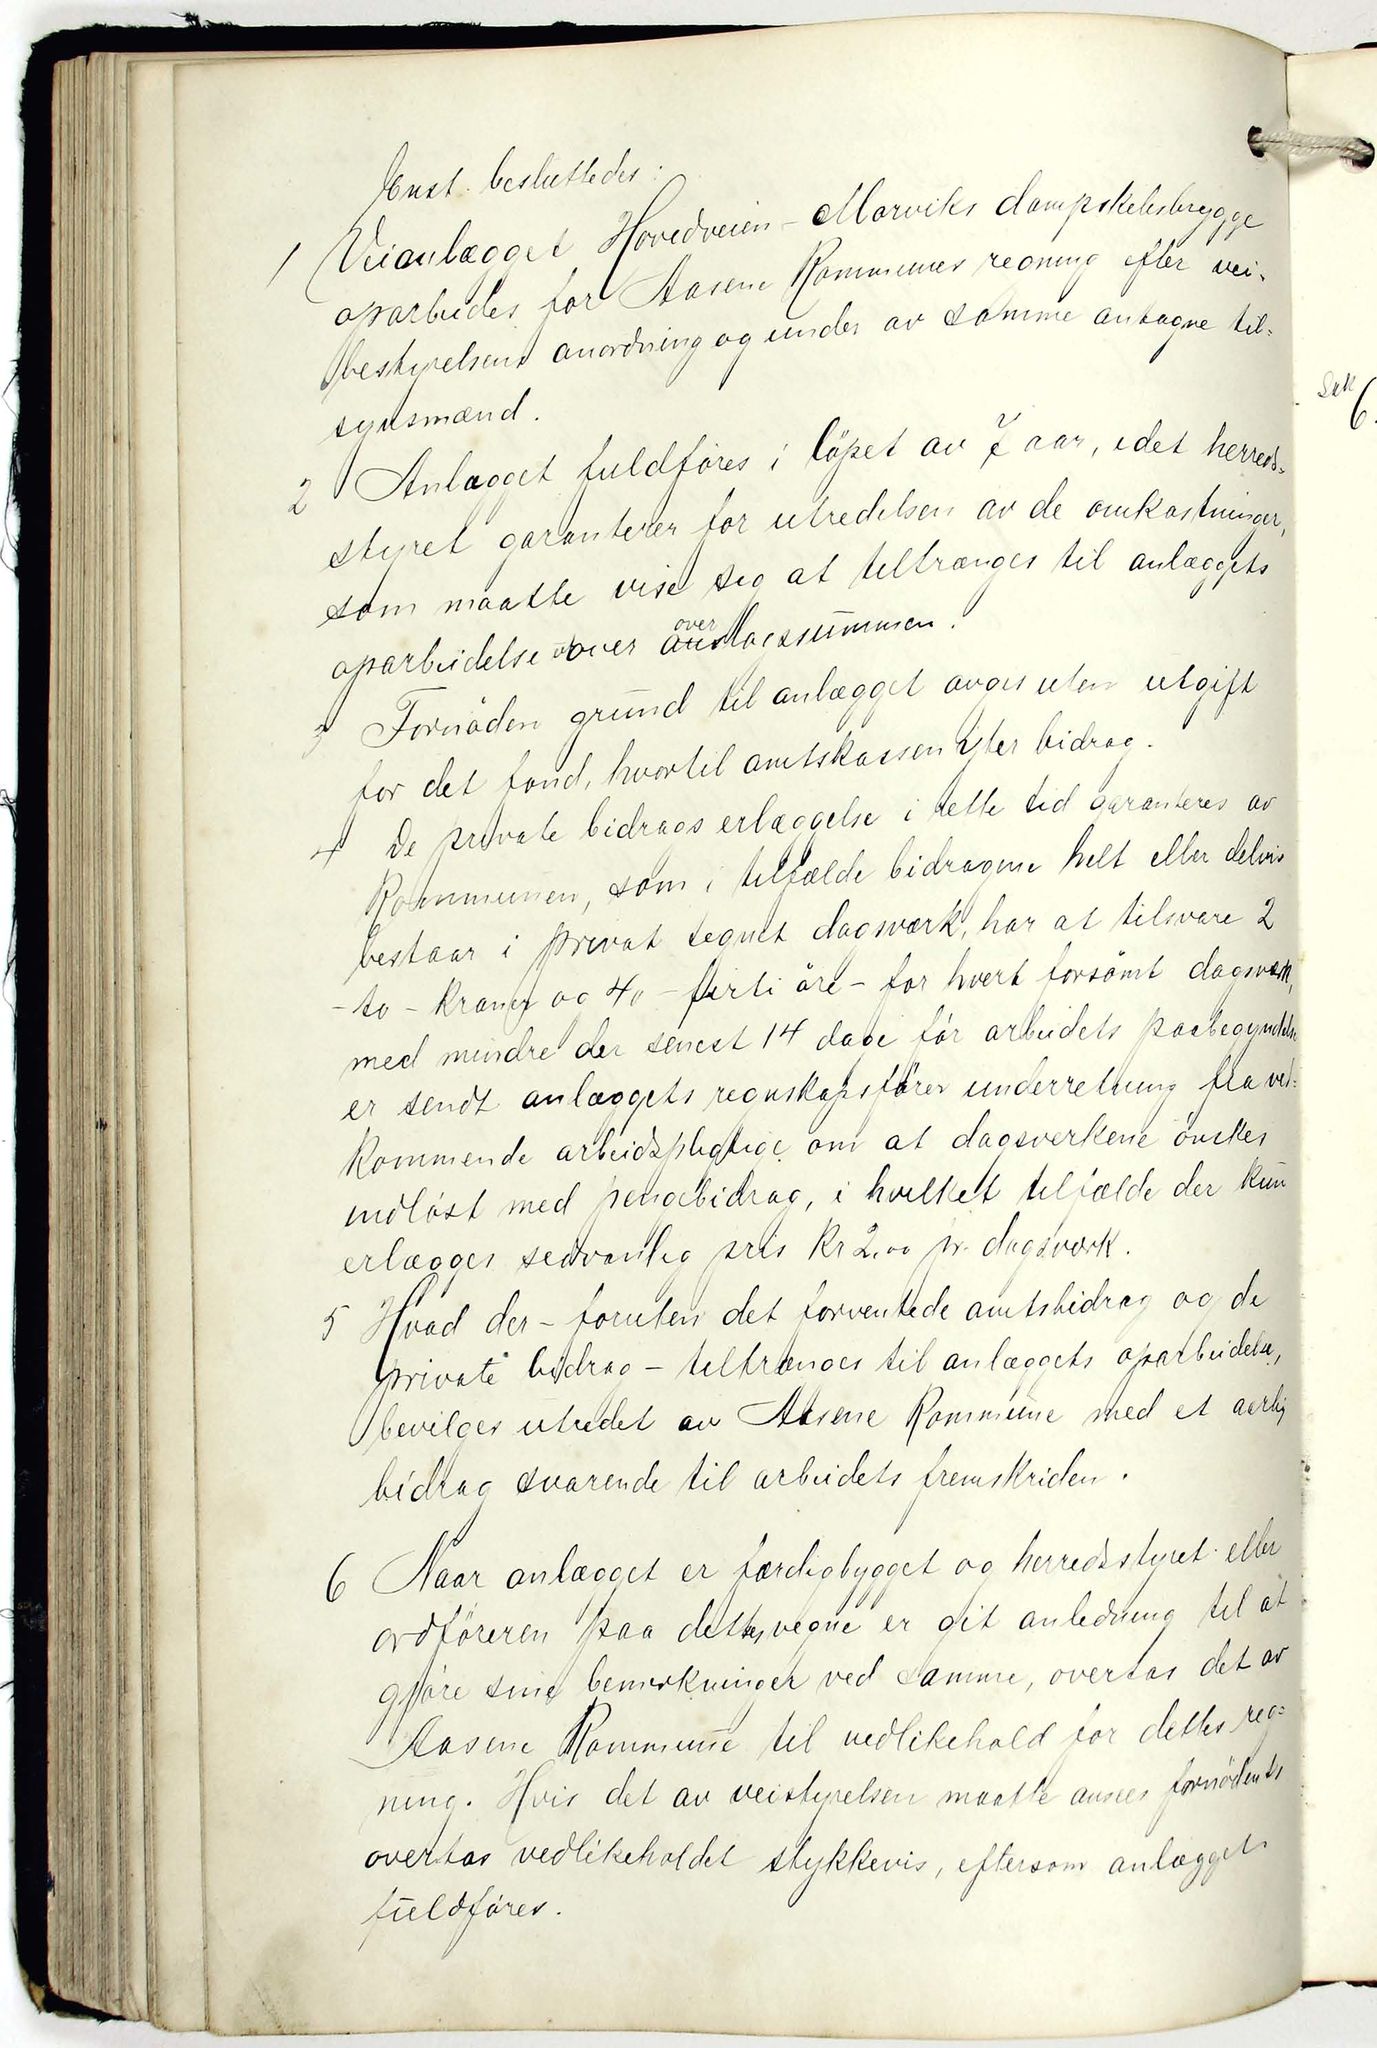 Enst. besluttedes:
1 Veianlægget Hovedveien - Marviks dampskibsbrygge
oparbeides for Aasene Kommunes regning efter vei-
bestyrelsens anordning og under av samme antagne til-
synsmænd.
2 Anlægget fuldføres i løpet av 7 aar, idet herreds-
styret garanterer for utredelsen av de omkostninger,
som maatte vise sig at tiltrænges til anlæggets
oparbeidelse over overslagssummen.
3 Fornøden grund til anlægget avges uten utgift
for det fond, hvortil amtskassen yter bidrag.
4 De private bidrags erlæggelse i rette tid garanteres av
Kommunen, som i tilfælde bidragene helt eller delvis
bestaar i privat tegnet dagsværk, har at tilsvare 2
- to - kroner og 40 - firti øre - for hvert forsømt dagsværk,
med mindre der senest 14 dage før arbeidets paabegyndelse
er sendt anlæggets regnskapsfører underretning fra ved-
kommende arbeidspligtige om at dagsverkene ønskes
indløst med pengebidrag, i hvilket tilfælde der kun
erlægges sedvanlig pris kr 2,00 pr. dagsværk.
5 Hvad der - foruten det forventede amtsbidrag og de
private bidrag - tiltrænges til anlæggets oparbeidelse,
bevilges utredet av Aasene Kommune med et aarlig
bidrag svarende til arbeidets fremskriden.
6 Naar anlægget er færdigbygget og herredsstyret eller
ordføreren paa dettes vegne er git anledning til at
gjøre sine bemerkninger ved samme, overtas det av
Aasene Kommune til vedlikehold for dettes reg-
ning. Hvis det av veistyrelsen maatte ansees fornødent
overtas vedlikeholdet stykkevis, eftersom anlægget
fuldføres.
Sak
6.